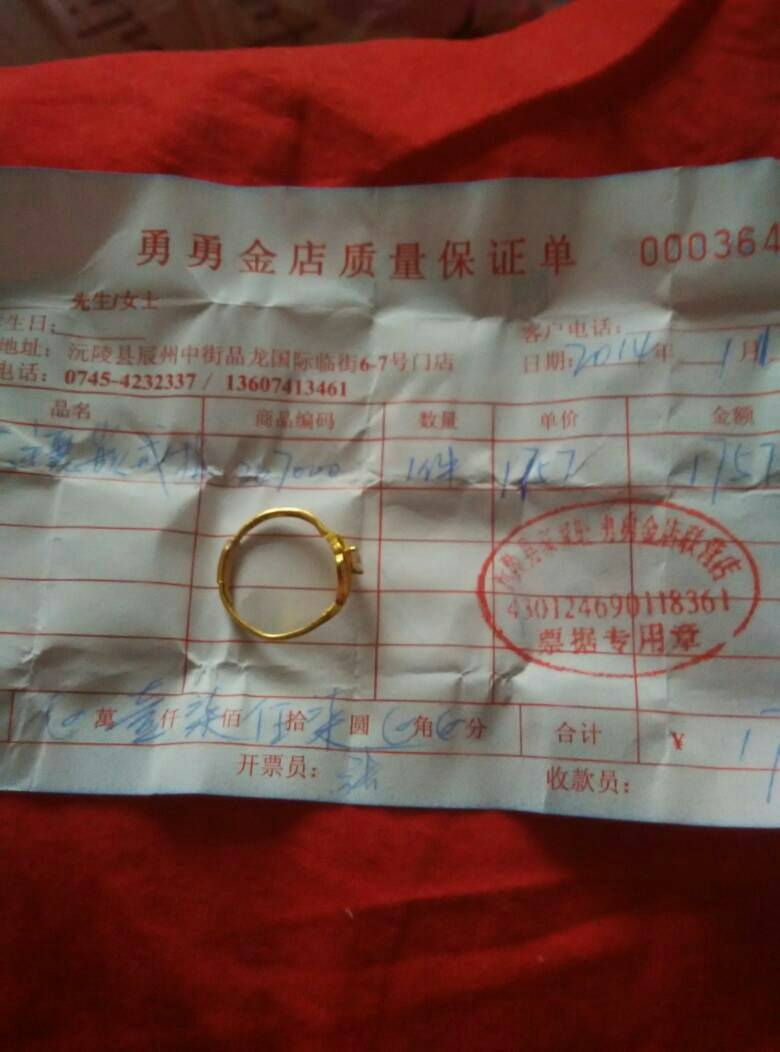 勇勇金店质量保证单 000364
先生/女士
生日: 客户电话:
地址: 沅陵县辰州中街品龙国际临街6-7号门店 日期: 2014年 1月1
电话: 0745-4232337 / 13607413461
品名 商品编码 数量 单价 金额
267000 1件 1757 1757
勇勇金店
430124690118361
票据专用章
萬壹仟柒佰伍拾柒圆 角 分 合计 ¥ 17
开票员: 张 收款员: